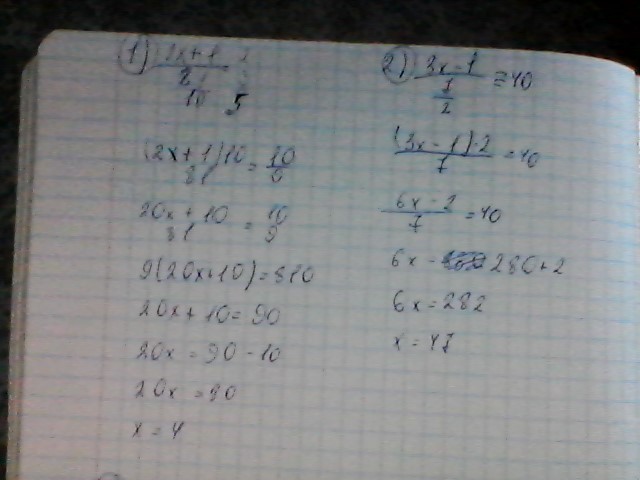 1) 2x+1
81
10
5
(2x+1)10 / 81 = 10/9
20x+10 / 81 = 10/9
9(20x+10)=810
20x+10=90
20x=90-10
20x=80
x=4
2) 3x-1 / 7/2 = 40
(3x-1)·2 / 7 = 40
6x-2 / 7 = 40
6x = 280+2
6x=282
x=47